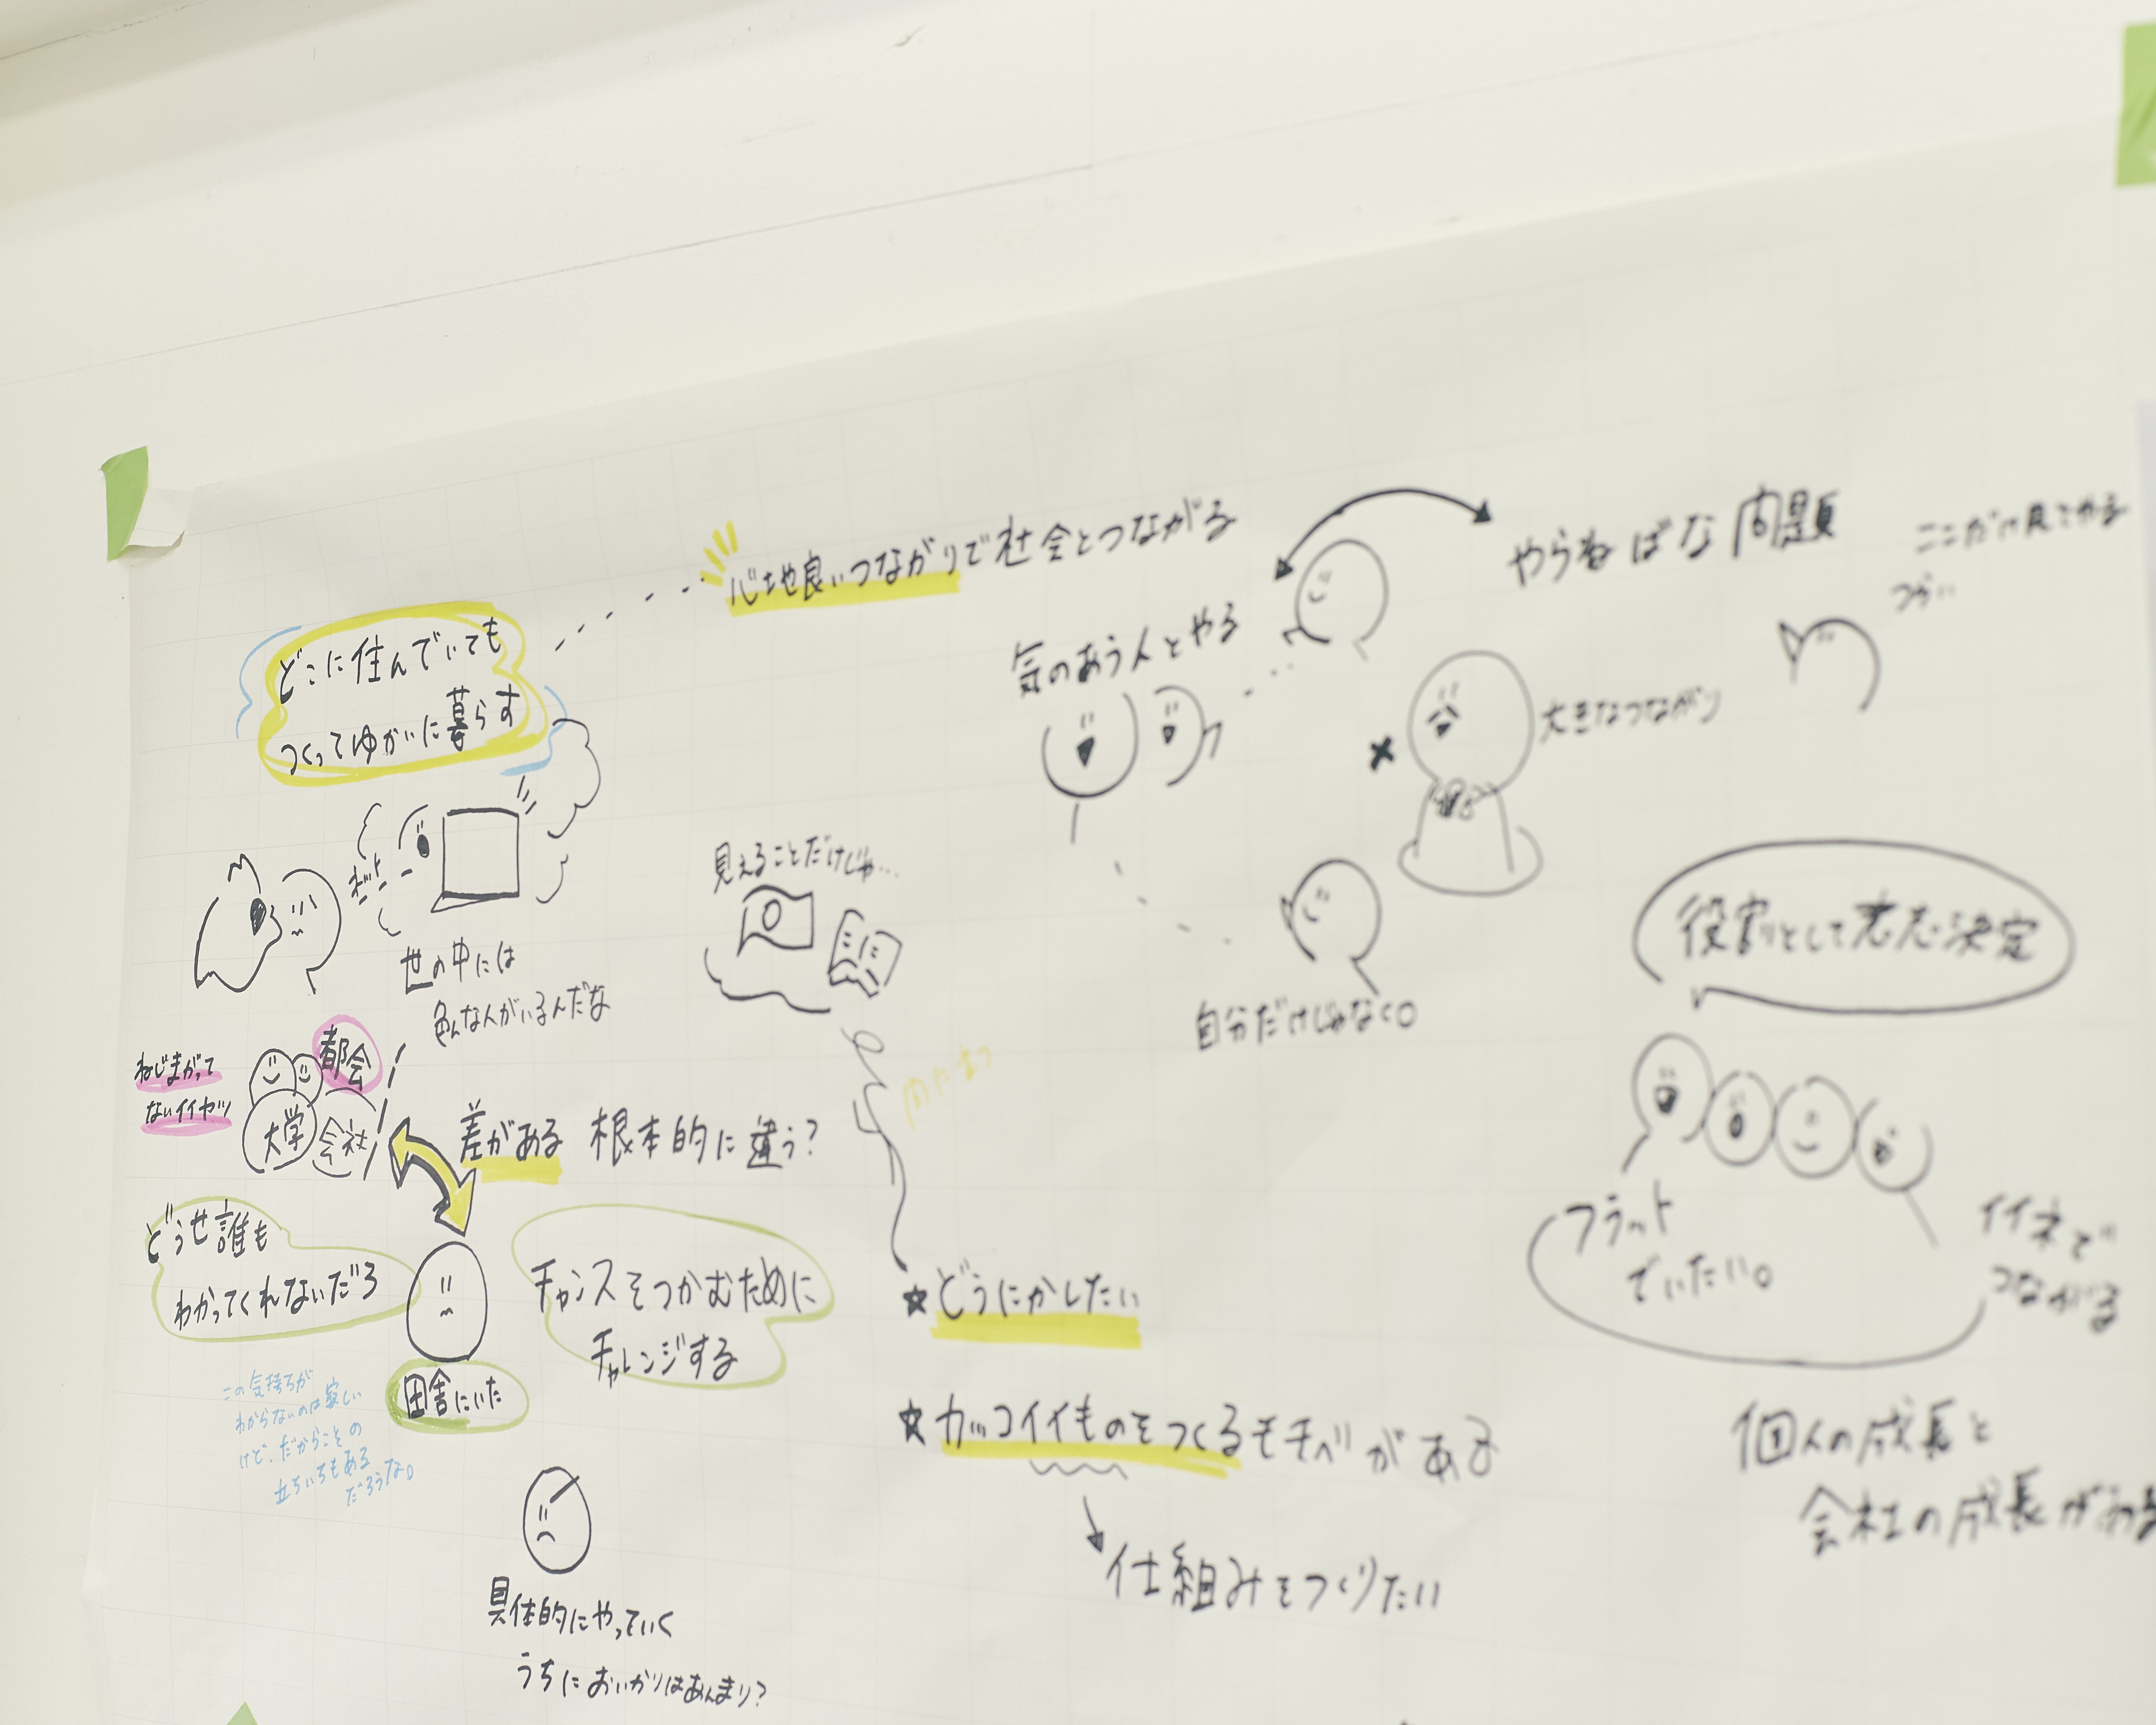 どこに住んでいても
つくってゆかいに暮らす
心地良いつながりで社会とつながる
やらねばな問題
ここだけ見てやる
つらい
気のあう人とやる
大きなつながり
ネット
世の中には
色んな人がいるんだな
見えることだけじゃ…
自分だけじゃなく。
役割として意志決定
ねじまがって
ないイイヤツ
都会
大学
会社
差がある 根本的に違う?
どうせ誰も
わかってくれないだろ
チャンスをつかむために
チャレンジする
田舎にいた
この気持ちが
わからないのは寂しい
けど、だからことの
立ちいちもある
だろうな。
★どうにかしたい
☆カッコイイものをつくるモチベがある
仕組みをつくりたい
フラット
でいたい。
イイネで
つながる
個人の成長と
会社の成長がある
具体的にやっていく
うちにおいかりはあんまり?